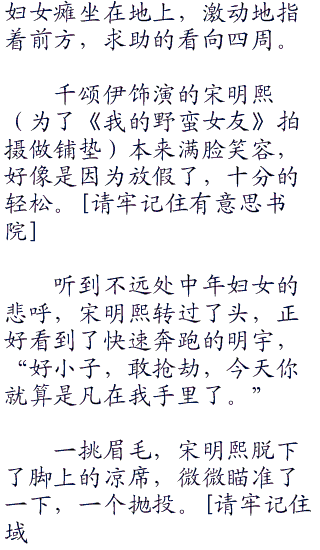 妇女瘫坐在地上，激动地指
着前方，求助的看向四周。
千颂伊饰演的宋明熙
（为了《我的野蛮女友》拍
摄做铺垫）本来满脸笑容，
好像是因为放假了，十分的
轻松。[请牢记住有意思书
院]
听到不远处中年妇女的
悲呼，宋明熙转过了头，正
好看到了快速奔跑的明宇，
“好小子，敢抢劫，今天你
就算是凡在我手里了。”
一挑眉毛，宋明熙脱下
了脚上的凉席，微微瞄准了
一下，一个抛投。[请牢记住
域